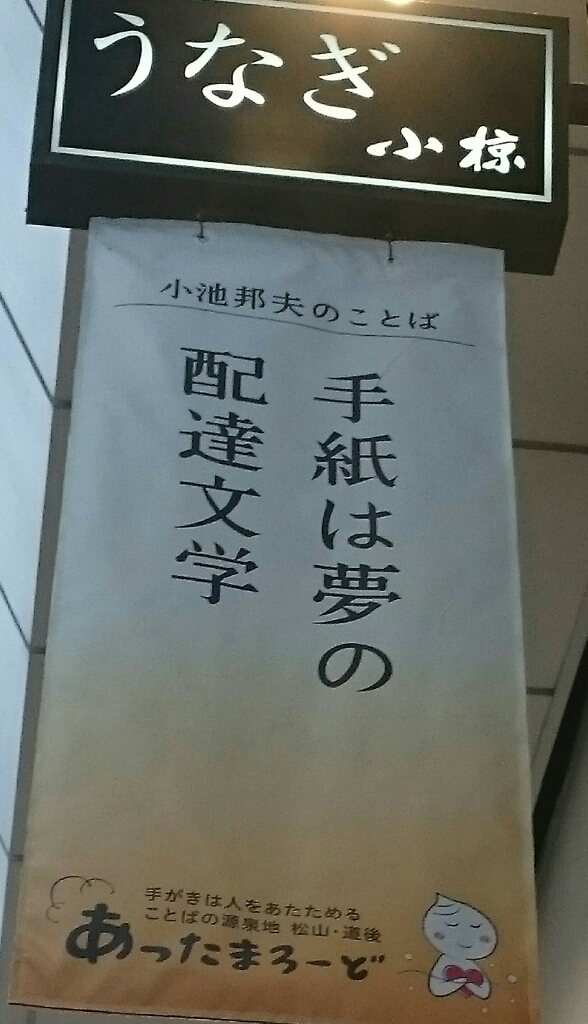 うなぎ
小椋
小池邦夫のことば
手紙は夢の
配達文学
手がきは人をあたためる
ことばの源泉地 松山・道後
あったまろーど